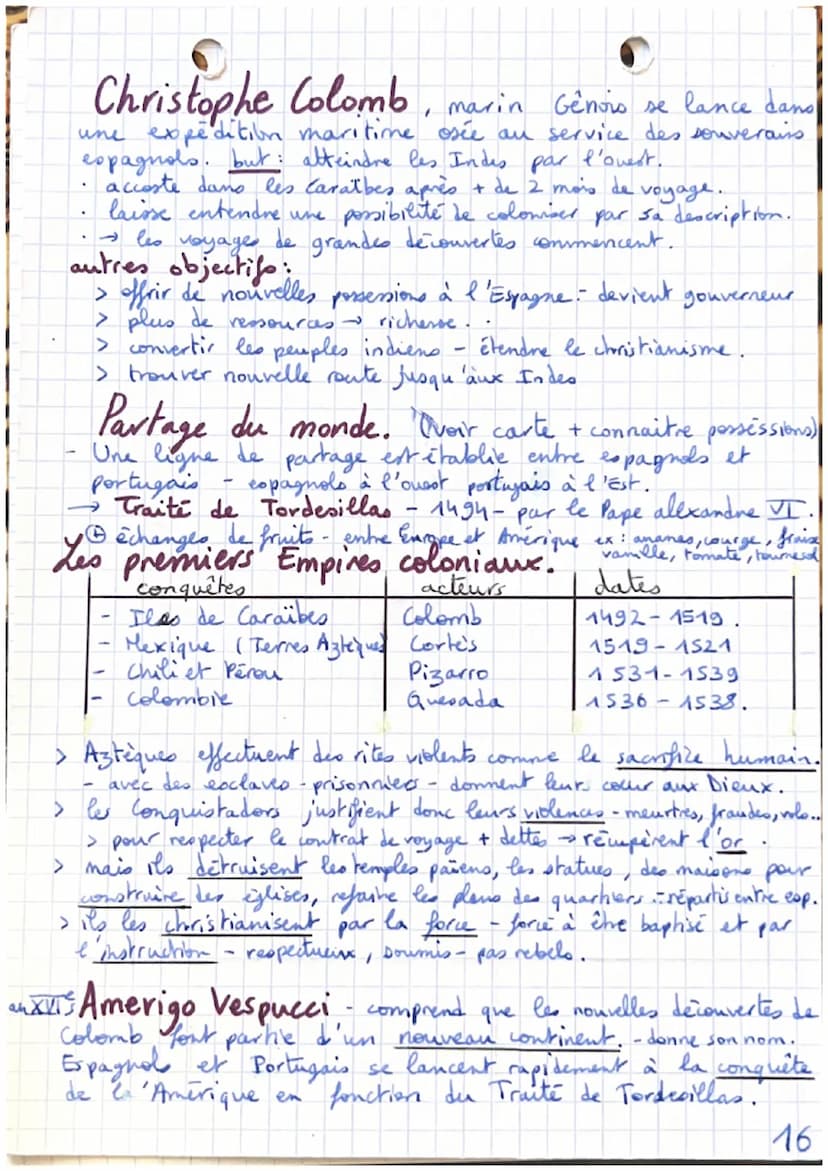 Christophe Colomb, marin Gênois se lance dans
une expédition maritime osée au service des souverains
espagnols. but : atteindre les Indes par l'ouest.
· accoste dans les Caraïbes après + de 2 mois de voyage.
· laisse entendre une possibilité de coloniser par sa description.
· → les voyages de grandes découvertes commencent.
autres objectifs :
> offrir de nouvelles possessions à l'Espagne - devient gouverneur
> plus de ressources → richesse.
> convertir les peuples indiens - étendre le christianisme.
> trouver nouvelle route jusqu'aux Indes
Partage du monde. (voir carte + connaitre posséssions)
- Une ligne de partage est établie entre espagnols et
portugais - espagnols à l'ouest portugais à l'Est.
→ Traité de Tordesillas - 1494 - par le Pape alexandre VI.
⊕ échanges de fruits - entre Europe et Amérique ex : ananas, courge, fraise
vanille, tomate, tournesol
Les premiers Empires coloniaux.
conquêtes acteurs dates
- Iles de Caraïbes Colomb 1492 - 1519.
- Mexique (Terres Aztèques) Cortès 1519 - 1521
- Chili et Pérou Pizarro 1531 - 1539
- Colombie Quesada 1536 - 1538.
> Aztèques effectuent des rites violents comme le sacrifice humain.
- avec des esclaves - prisonniers - donnent leurs cœur aux Dieux.
> les Conquistadors justifient donc leurs violences - meurtres, fraudes, vols..
> pour respecter le contrat de voyage + dettes → récupèrent l'or.
> mais ils détruisent les temples païens, les statues, des maisons pour
construire des églises, refaire les plans des quartiers - répartis entre esp.
> ils les christianisent par la force - forcé à être baptisé et par
l'instruction - respectueux, soumis - pas rebels.
au XVIe s Amerigo Vespucci - comprend que les nouvelles découvertes de
Colomb font partie d'un nouveau continent. - donne son nom.
Espagnols et Portugais se lancent rapidement à la conquête
de l'Amérique en fonction du Traité de Tordesillas.
16